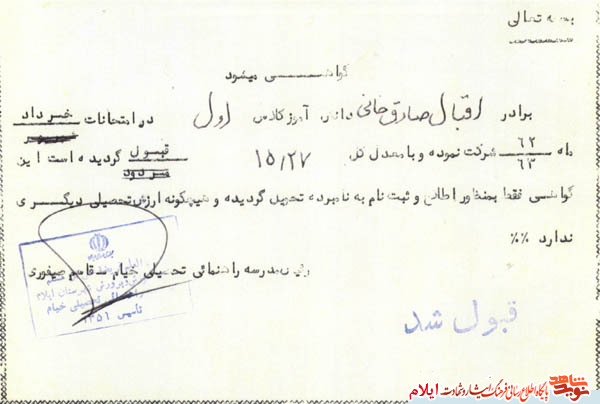 بسمه تعالی
گواهی میشود
برادر اقبال صادق خانی دانش آموز کلاس اول در امتحانات خرداد
ماه ۶۲ ۶۳ شرکت نموده و با معدل کل ۱۵/۲۷ قبول مردود گردیده است این
گواهی فقط بمنظور اطلاع و ثبت نام به نامبرده تحویل گردیده و هیچگونه ارزش تحصیلی دیگری
ندارد ٪٪
رئیس مدرسه راهنمائی تحصیلی خیام قاسم صیفوری
شهرستان ایلام
تحصیلی خیام
تاسیس ۱۳۵۱
قبول شد
نوید شاهد
پایگاه اطلاع رسانی فرهنگ ایثار و شهادت ایلام